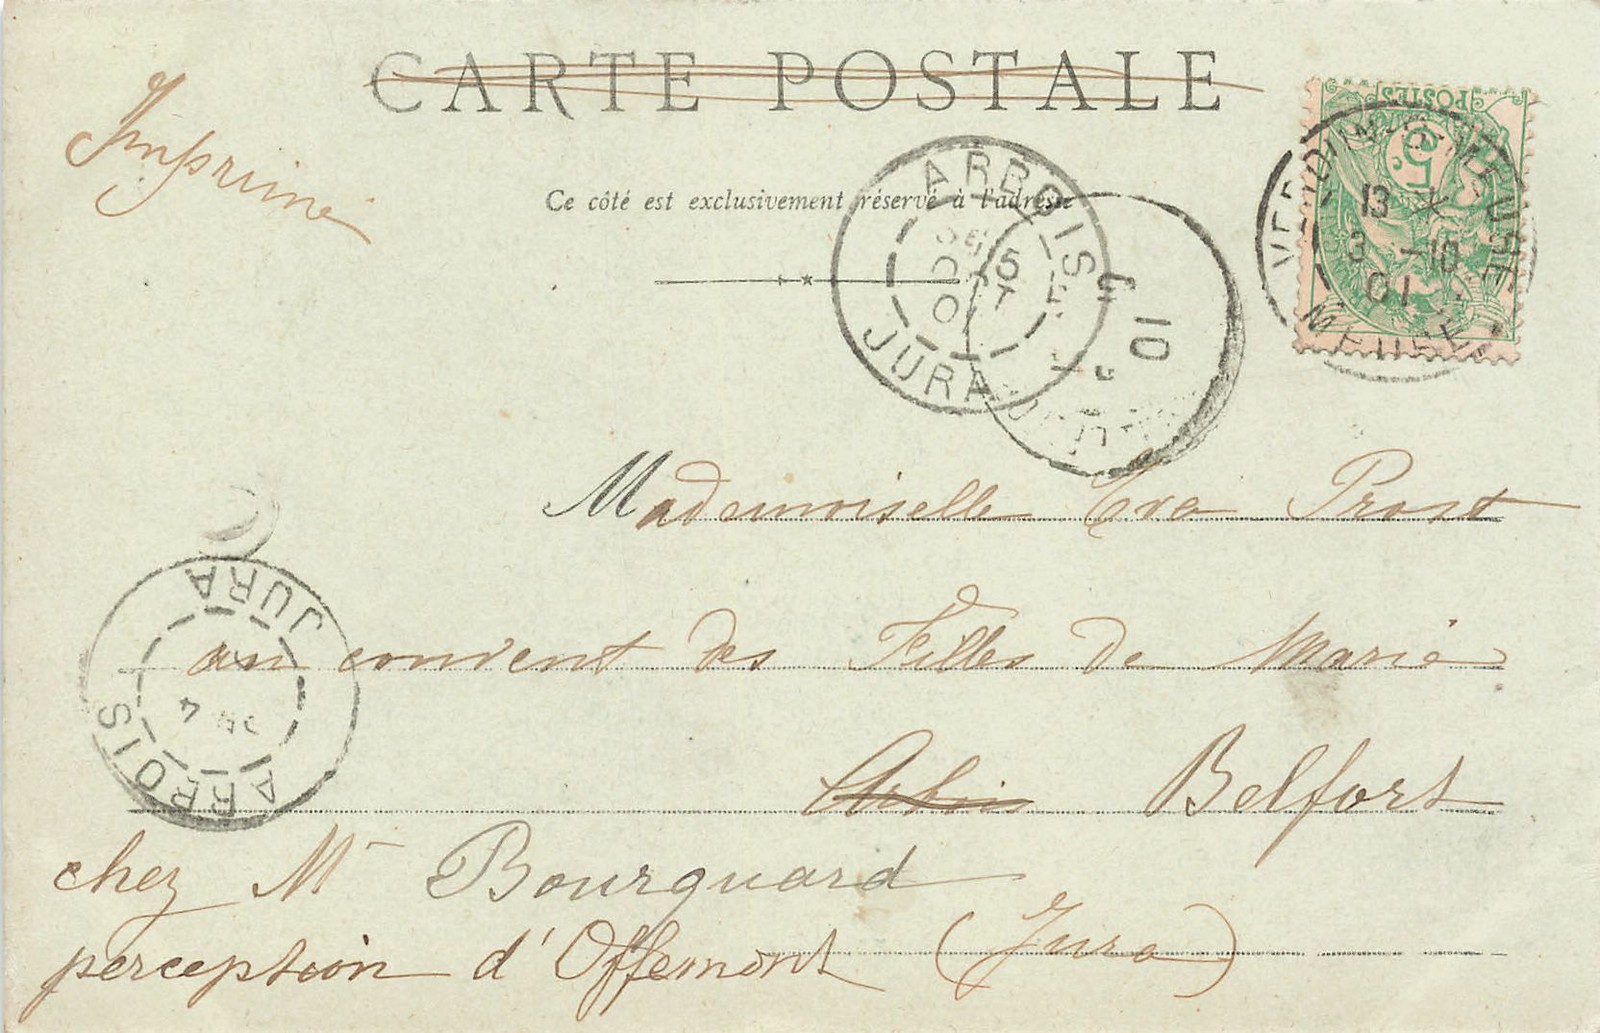 CARTE POSTALE
Imprimé
Ce côté est exclusivement réservé à l'adresse
POSTES
5c
VERDUN-S-MEUSE
13
3 -10
01
MEUSE
ARBOIS
5
OCT
01
JURA
10
JURA
4
ARBOIS
Mademoiselle Eva Prost
au couvent des Filles de Marie
Arbois Belfort
chez Mr Bourquard
perception d'Offemont (Jura)